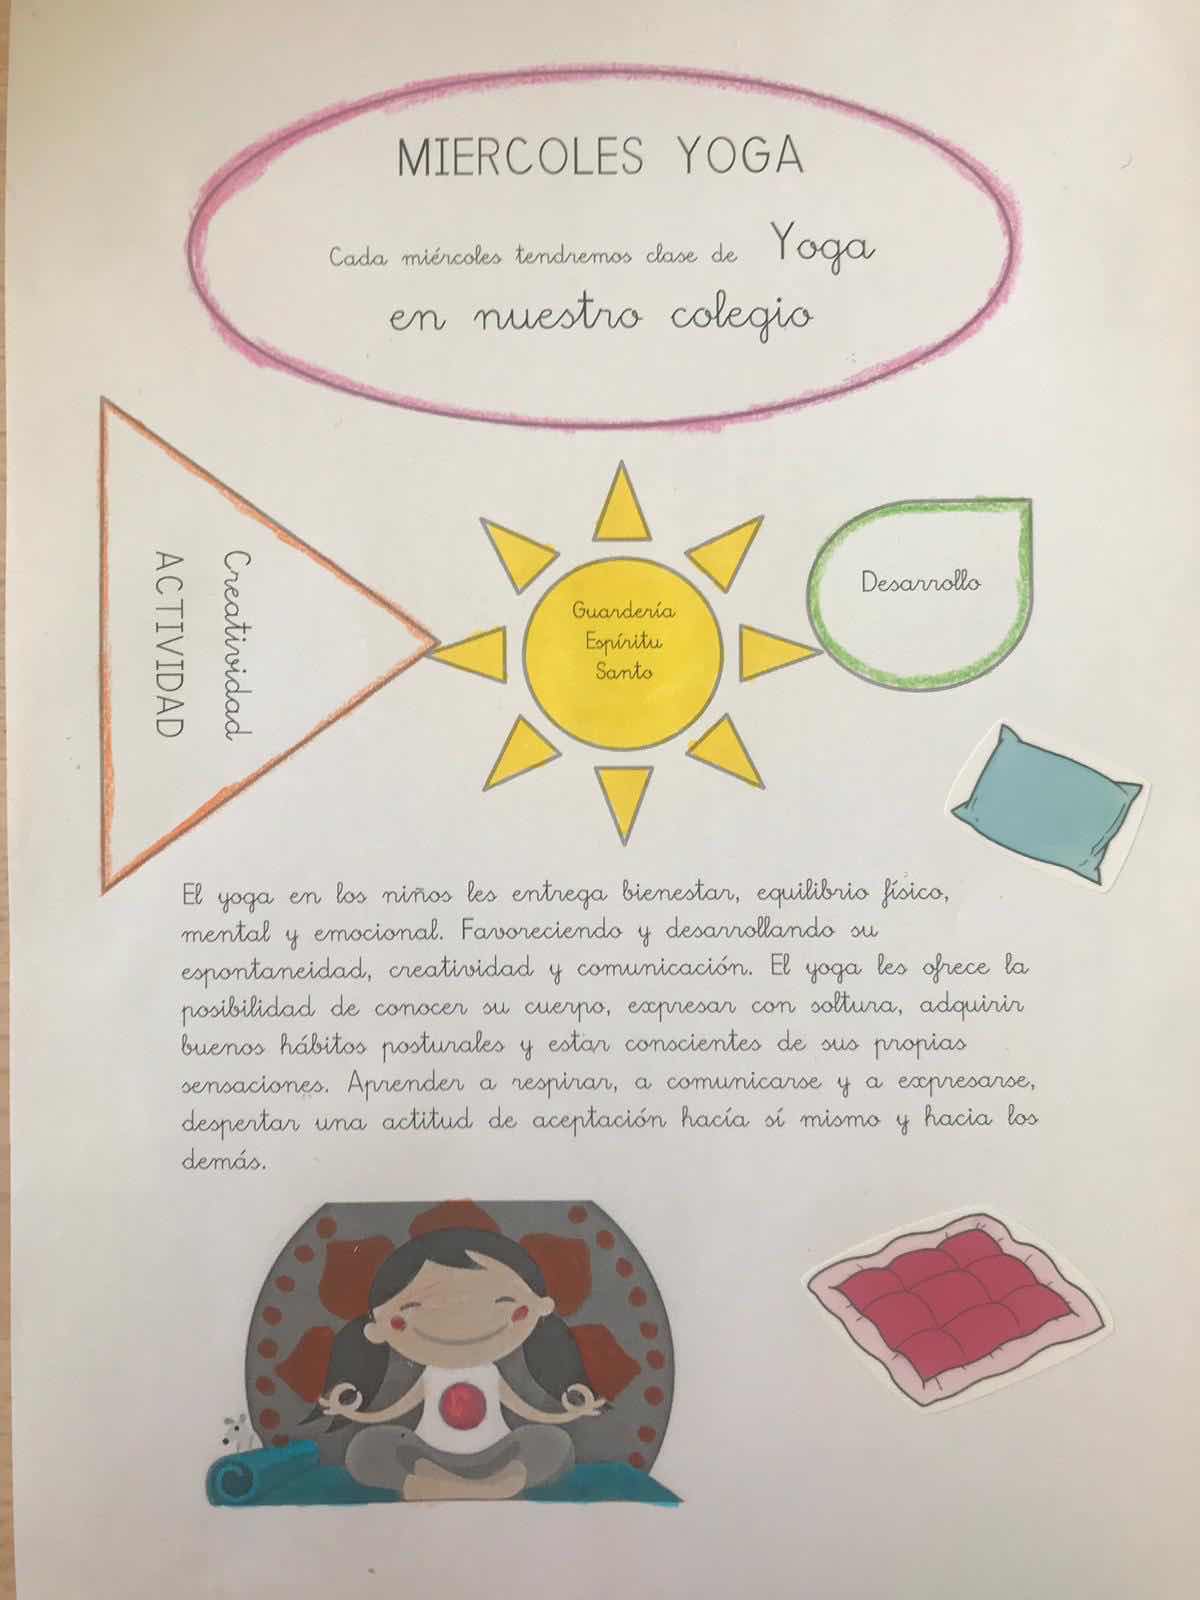 MIERCOLES YOGA
Cada miércoles tendremos clase de Yoga
en nuestro colegio
Creatividad
ACTIVIDAD
Guardería
Espíritu
Santo
Desarrollo
El yoga en los niños les entrega bienestar, equilibrio físico,
mental y emocional. Favoreciendo y desarrollando su
espontaneidad, creatividad y comunicación. El yoga les ofrece la
posibilidad de conocer su cuerpo, expresar con soltura, adquirir
buenos hábitos posturales y estar conscientes de sus propias
sensaciones. Aprender a respirar, a comunicarse y a expresarse,
despertar una actitud de aceptación hacía sí mismo y hacia los
demás.